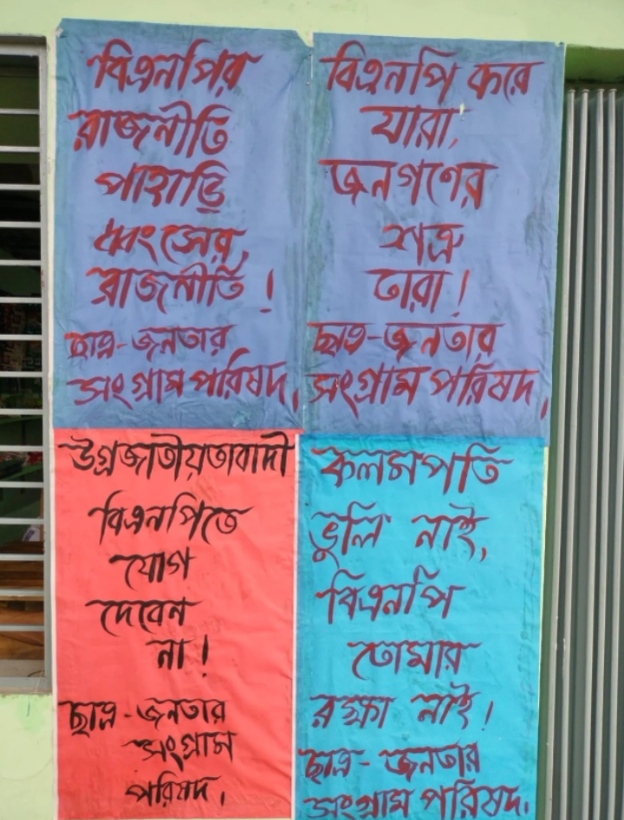 বিএনপির
রাজনীতি
পাহাড়ি
ধ্বংসের
রাজনীতি!
ছাত্র-জনতার
সংগ্রাম পরিষদ,
বিএনপি করে
যারা,
জনগণের
শত্রু
তারা!
ছাত্র-জনতার
সংগ্রাম পরিষদ,
উগ্রজাতীয়তাবাদী
বিএনপিতে
যোগ
দেবেন
না!
ছাত্র-জনতার
সংগ্রাম
পরিষদ,
কলমপতি
ভুলি নাই,
বিএনপি
তোমার
রক্ষা নাই।
ছাত্র-জনতার
সংগ্রাম পরিষদ,